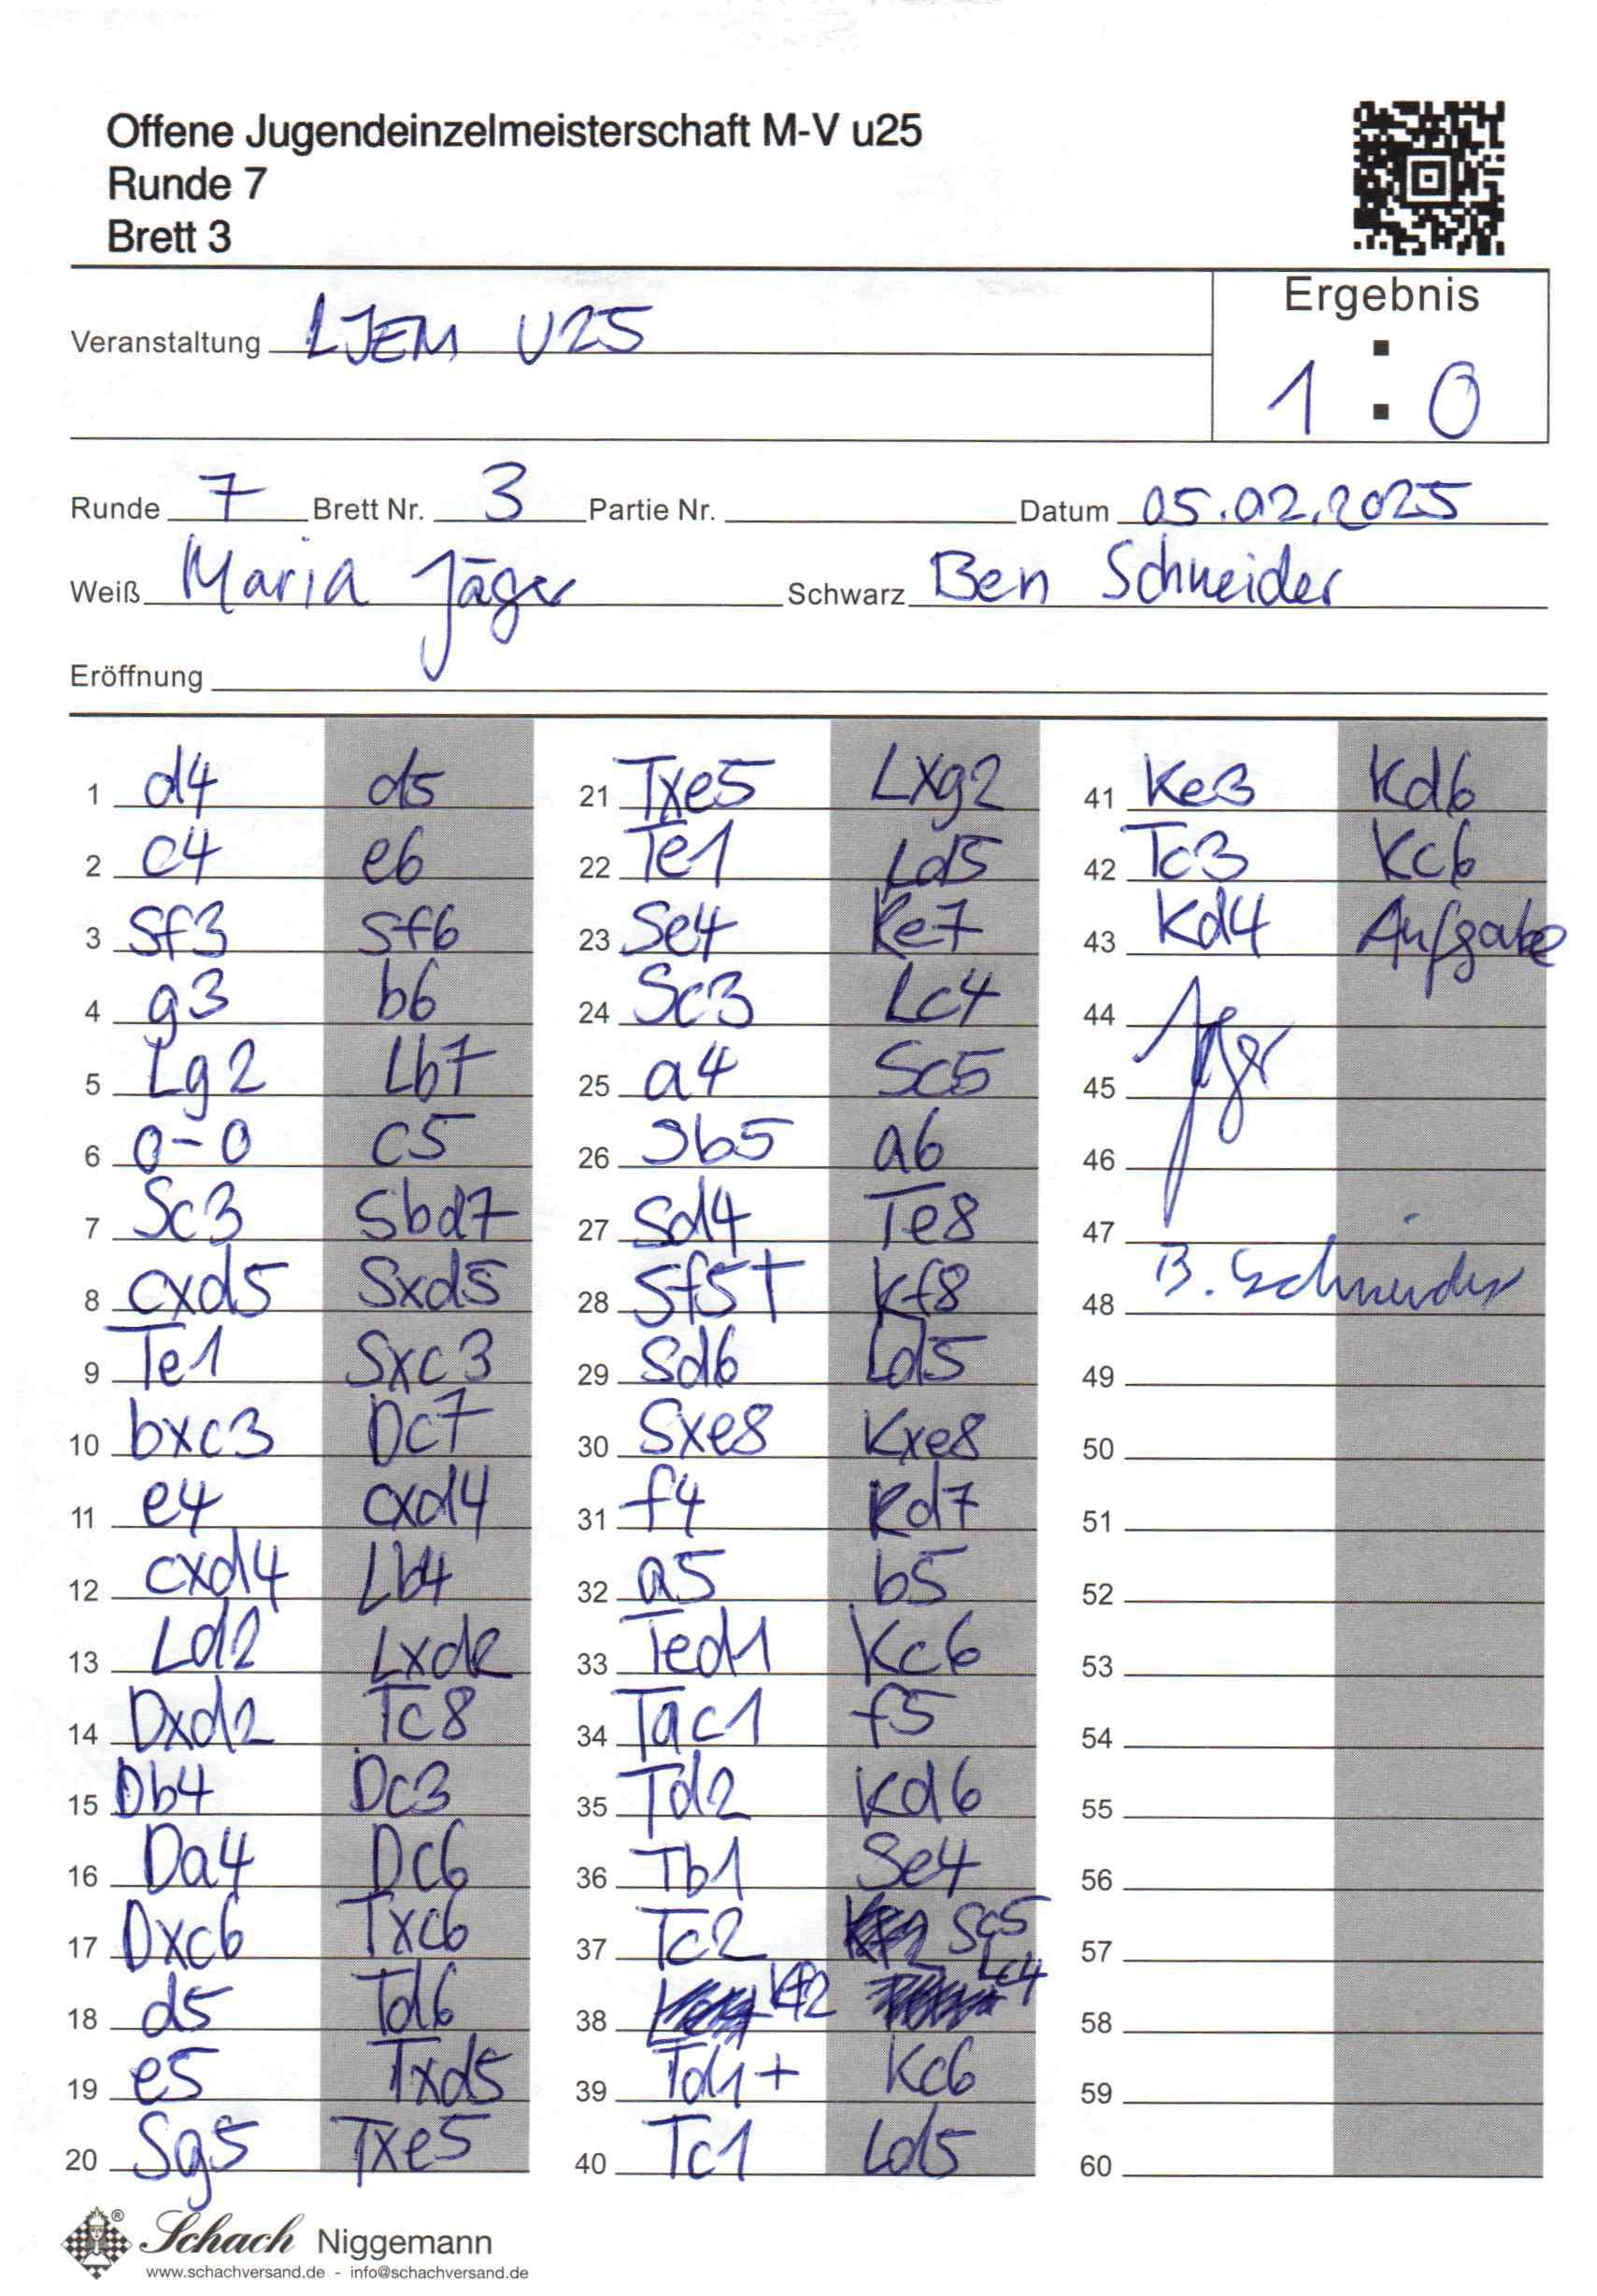 Offene Jugendeinzelmeisterschaft M-V u25
Runde 7
Brett 3
Ergebnis
Veranstaltung LJEM U25
1 : 0
Runde 7 Brett Nr. 3 Partie Nr. Datum 05.02.2025
Weiß Maria Jäger Schwarz Ben Schneider
Eröffnung
1 d4 d5
2 c4 e6
3 Sf3 Sf6
4 g3 b6
5 Lg2 Lb7
6 0-0 c5
7 Sc3 Sbd7
8 cxd5 Sxd5
9 Te1 Sxc3
10 bxc3 Dc7
11 e4 cxd4
12 cxd4 Lb4
13 Ld2 Lxd2
14 Dxd2 Tc8
15 Db4 Dc3
16 Da4 Dc6
17 Dxc6 Txc6
18 d5 Td6
19 e5 Txd5
20 Sg5 Txe5
21 Txe5 Lxg2
22 Te1 Ld5
23 Se4 Ke7
24 Sc3 Lc4
25 a4 Sc5
26 Sb5 a6
27 Sd4 Te8
28 Sf5† Kf8
29 Sd6 Ld5
30 Sxe8 Kxe8
31 f4 Kd7
32 a5 b5
33 Ted1 Kc6
34 Tac1 f5
35 Td2 Kd6
36 Tb1 Se4
37 Tc2 Sc5
38 Kf2 Lc4
39 Td1+ Kc6
40 Tc1 Ld5
41 Ke3 Kd6
42 Tc3 Kc6
43 Kd4 Aufgabe
44 Jäger
45
46
47
48 B. Schneider
49
50
51
52
53
54
55
56
57
58
59
60
Schach Niggemann
www.schachversand.de - info@schachversand.de